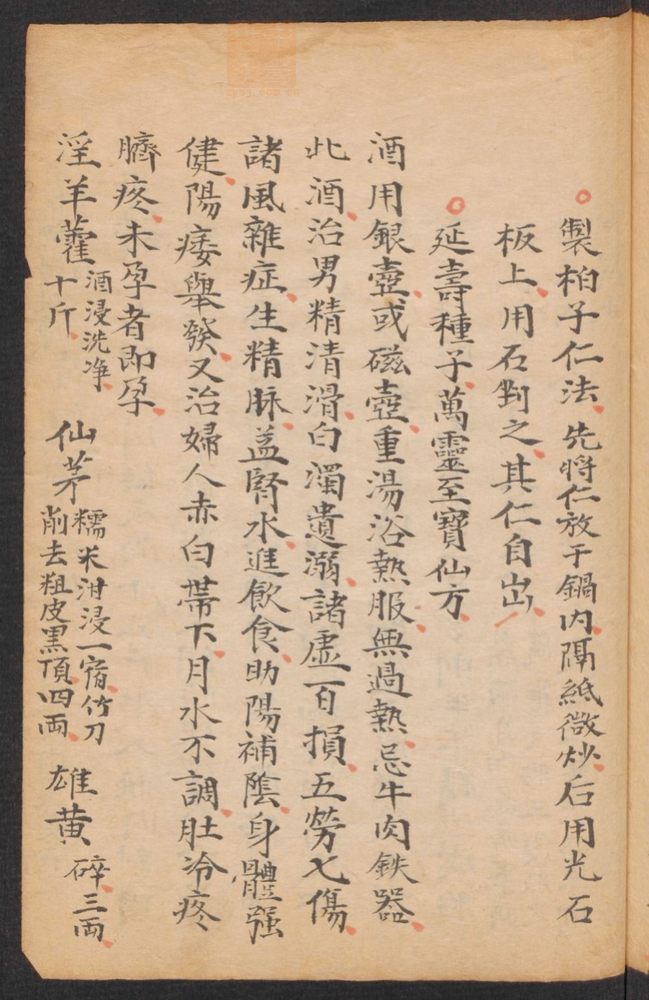 製柏子仁法先將仁放于鍋内隔紙微炒后用光石
板上用石劉之其仁自出
延壽種子萬靈至寶仙方
酒用銀壺或磁壺重湯浴熱服無過熱忌牛肉鉄器
此酒治男精清滑白濁遺溺諸虛百損五勞七傷
諸風雜症生精脉益腎水進飲食助陽補陰身體强
健陽痿舉發又治婦人赤白帶下月水不調肚冷疼
臍疼未孕者即孕
淫羊藿酒浸洗净十斤 仙茅糯米泔浸一宿竹刀削去粗皮黑頂四兩 雄黄碎三兩